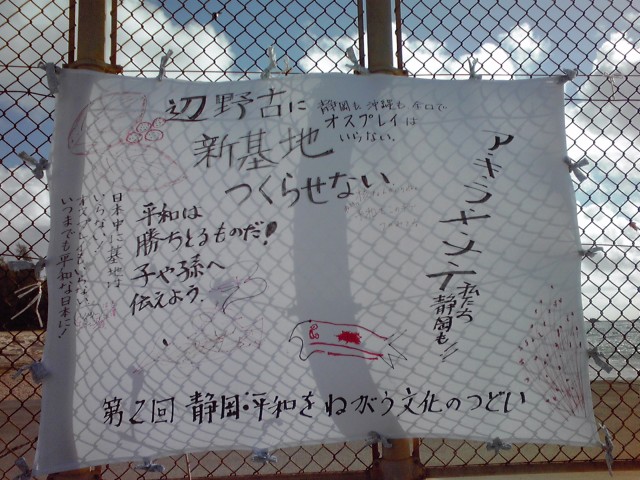 辺野古に
新基地
つくらせない
静岡も沖縄も全国で
オスプレイは
いらない。
アキラメンナイ
私たち
静岡も!!
平和は
勝ちとるものだ!
子や孫へ
伝えよう.
日本中に基地は
いらない!
いつまでも平和な日本に!
第2回 静岡・平和をねがう文化のつどい